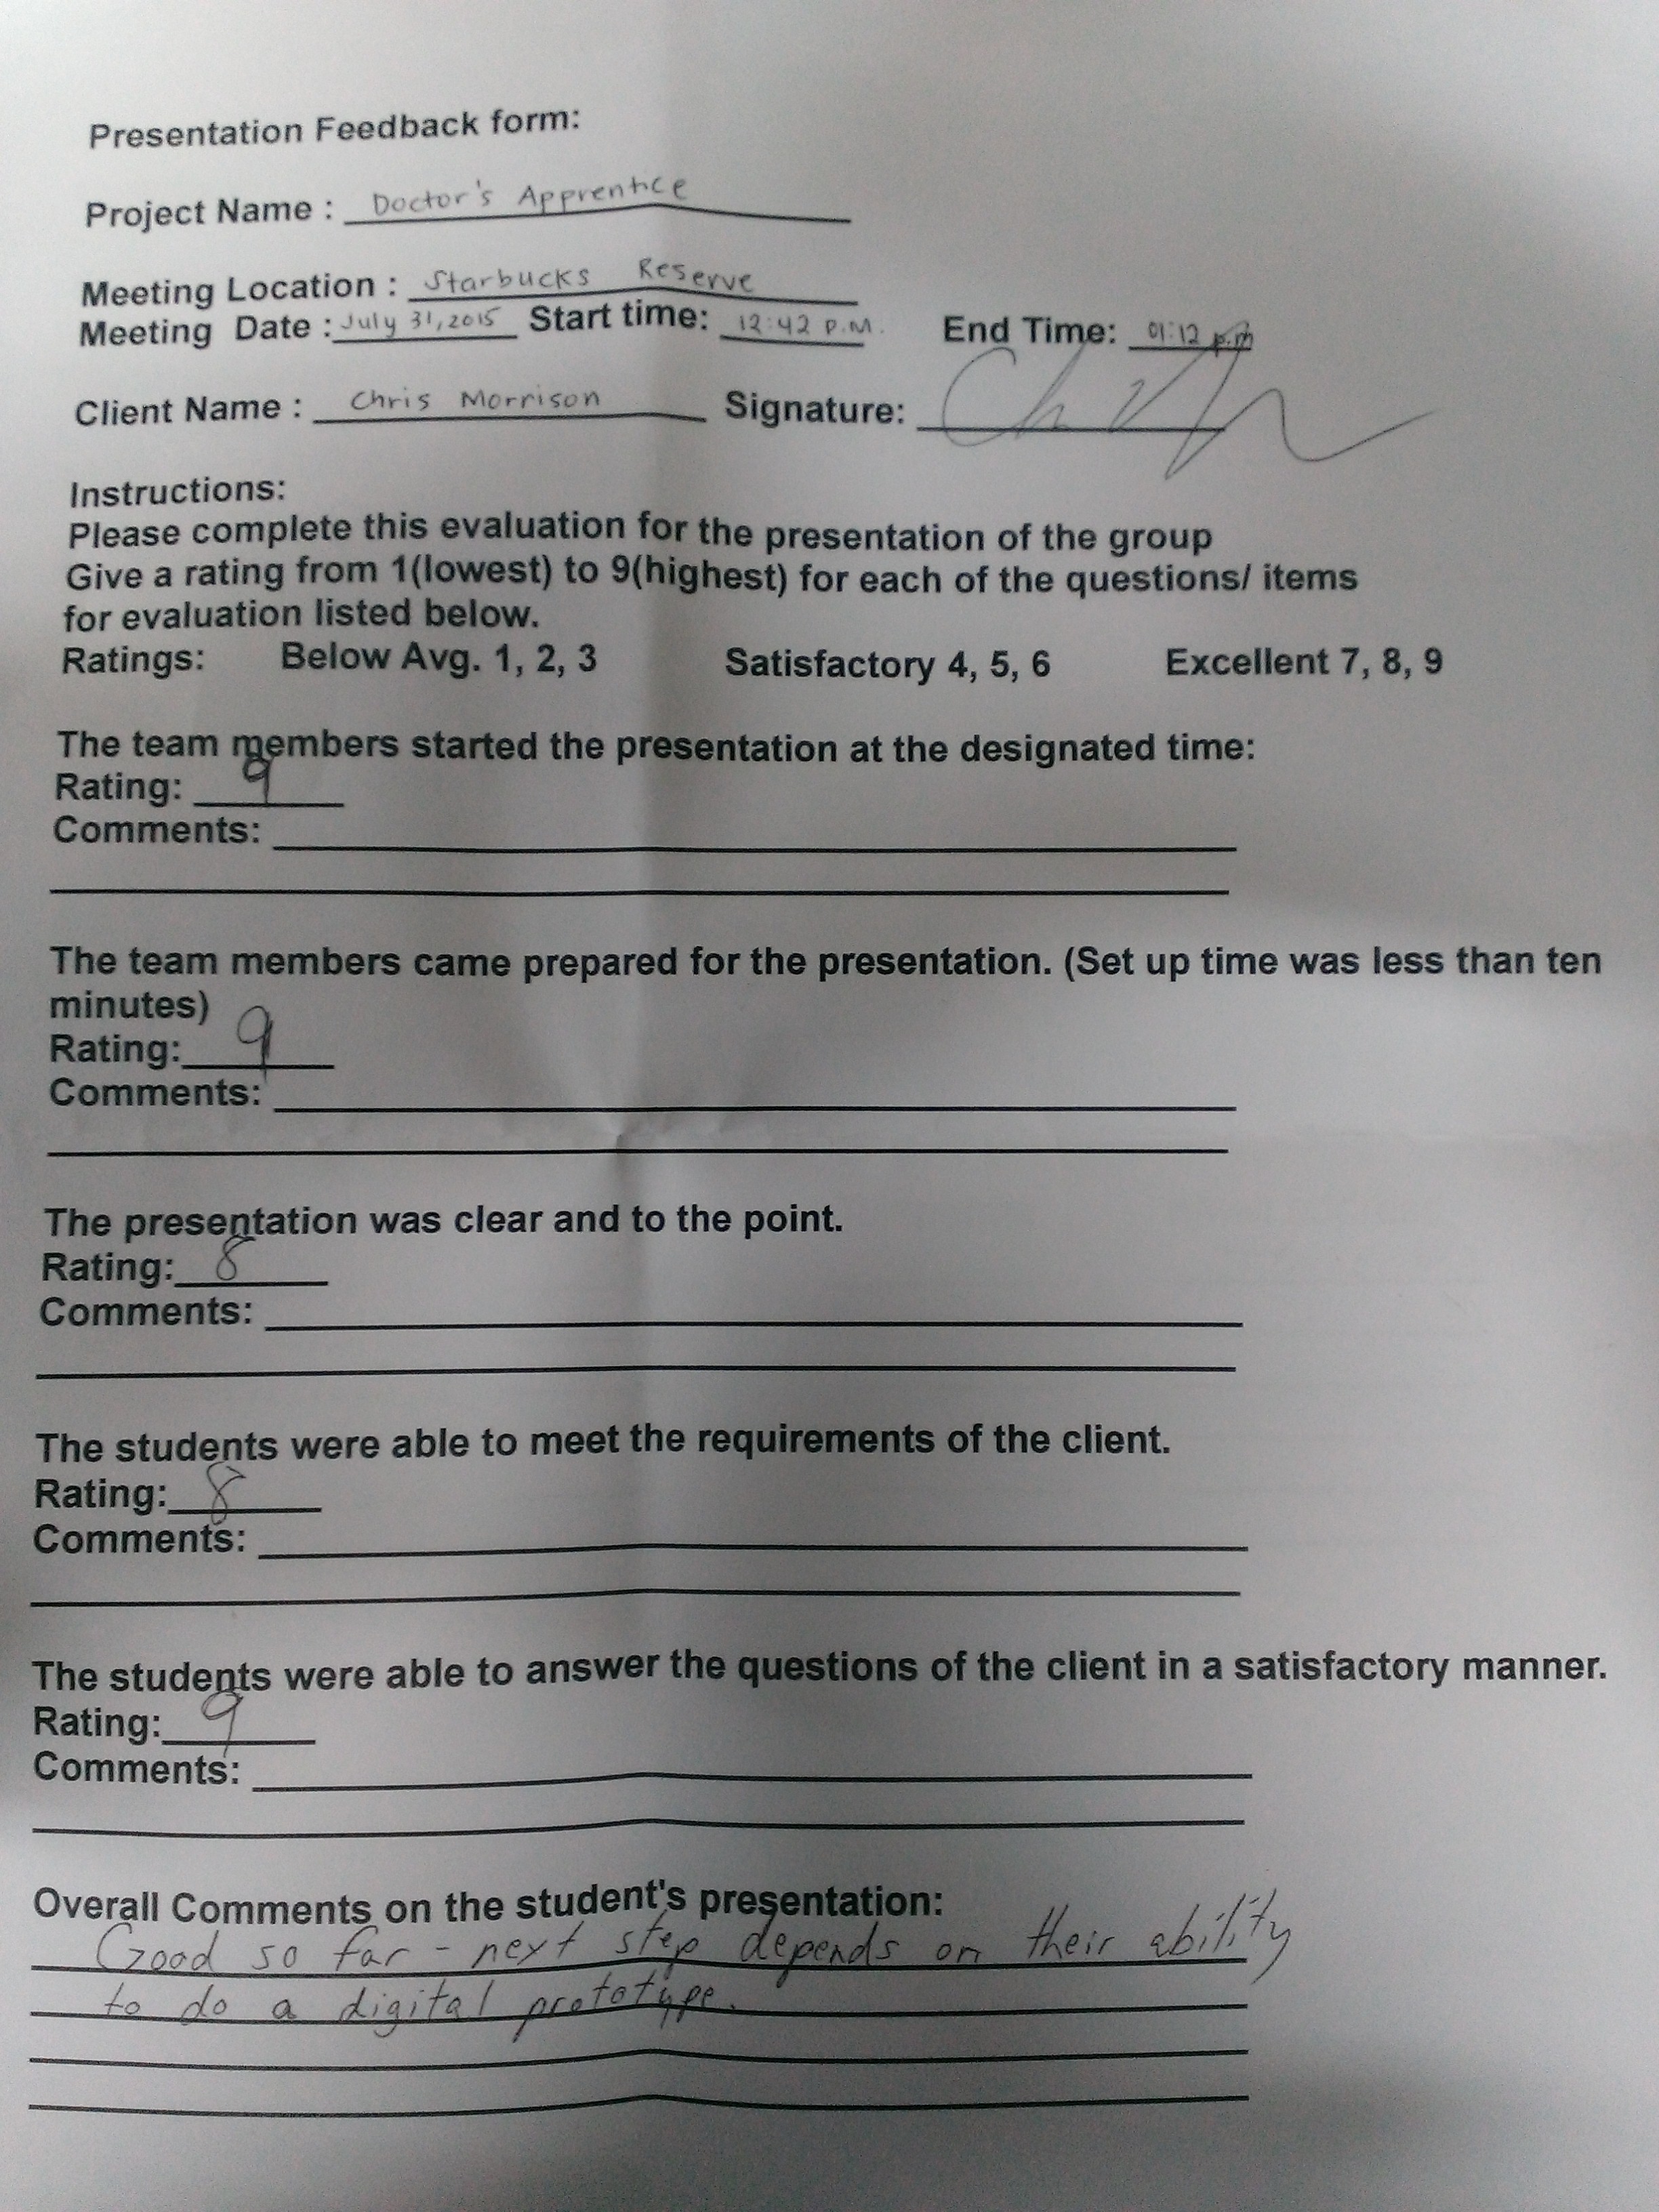 Presentation Feedback form:
Project Name : Doctor's Apprentice
Meeting Location : Starbucks Reserve
Meeting Date : July 31, 2015 Start time: 12:42 P.M. End Time: 01:12 p.m
Client Name : Chris Morrison Signature:
Instructions:
Please complete this evaluation for the presentation of the group
Give a rating from 1(lowest) to 9(highest) for each of the questions/ items
for evaluation listed below.
Ratings: Below Avg. 1, 2, 3 Satisfactory 4, 5, 6 Excellent 7, 8, 9
The team members started the presentation at the designated time:
Rating: 9
Comments:
The team members came prepared for the presentation. (Set up time was less than ten
minutes)
Rating: 9
Comments:
The presentation was clear and to the point.
Rating: 8
Comments:
The students were able to meet the requirements of the client.
Rating: 8
Comments:
The students were able to answer the questions of the client in a satisfactory manner.
Rating: 9
Comments:
Overall Comments on the student's presentation:
Good so far - next step depends on their ability
to do a digital prototype.